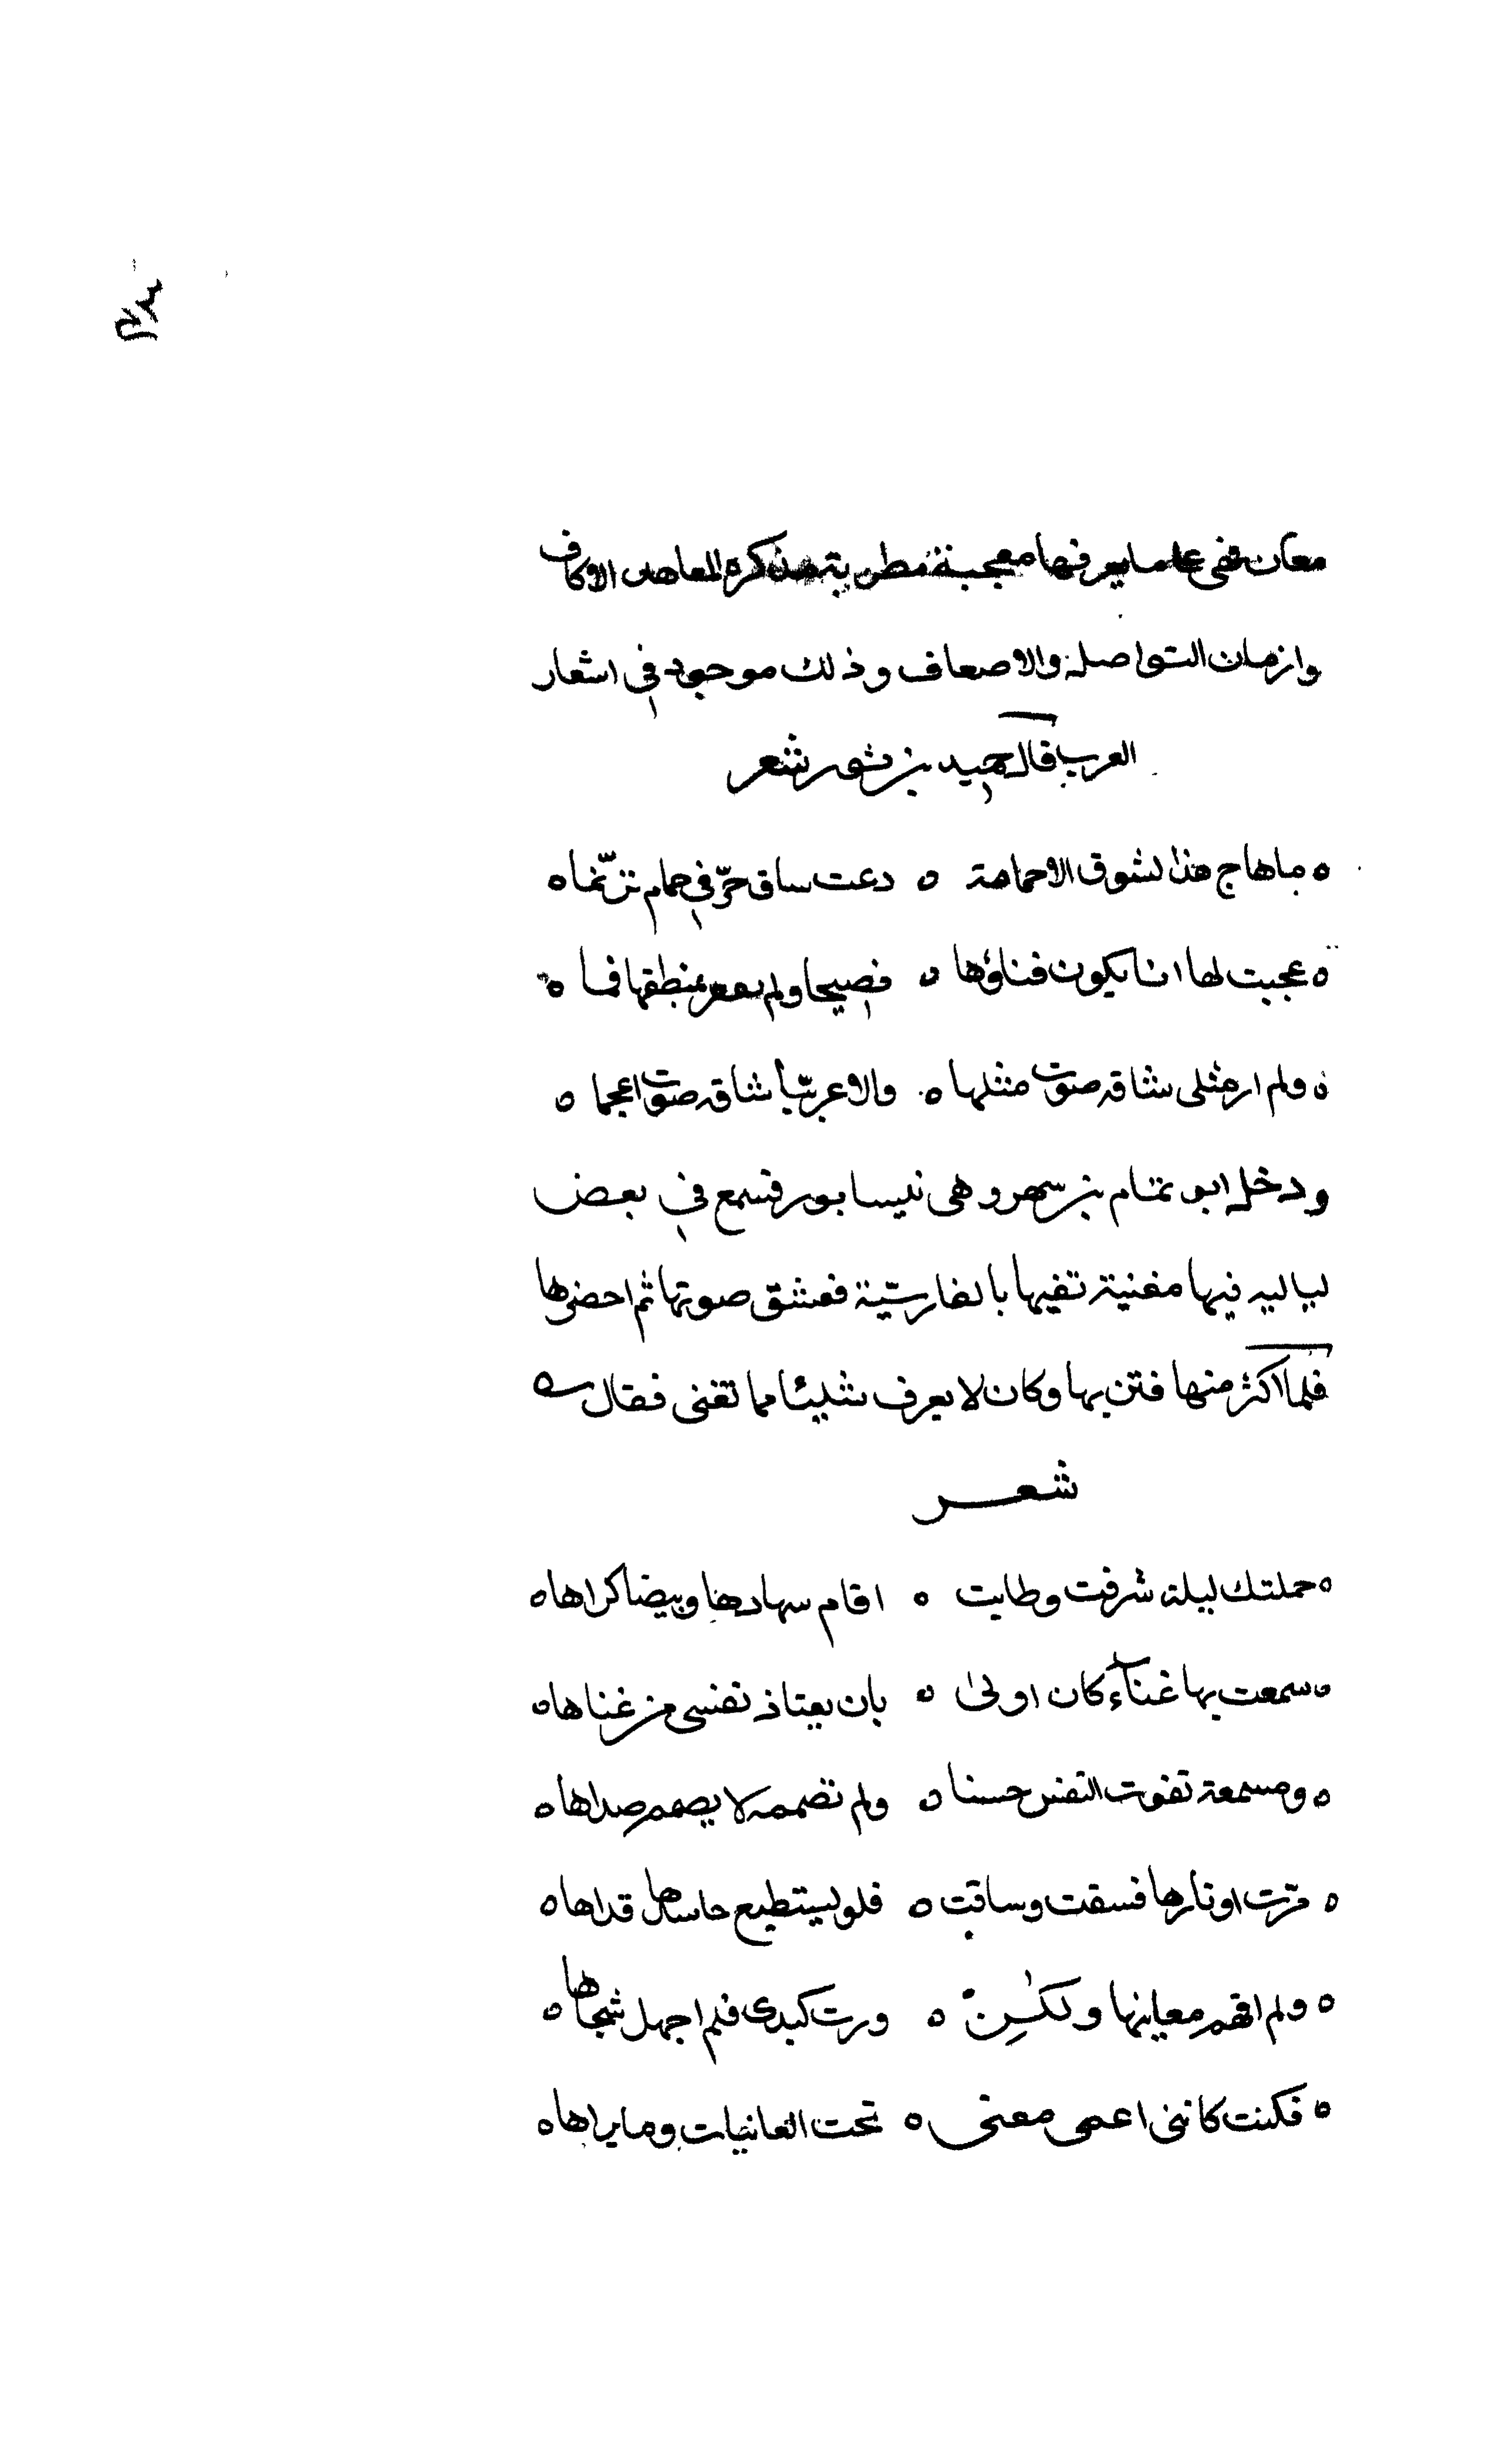 معان فهى على ما يعرفها معجبة مطربة مذكرة المعاهد الالاف
وازمان التواصله والاصعاف وذلك موجود في اشعار
العرب قال حميد بن ثور شعر
ه ما هاج هذا لشوق الا حمامة ه دعت ساق حرّ في حمام ترنّما ه
ه عجبت لها انا يكون فناؤها ه فصيحا ولم بمنطقها فما ه
ه ولم ار مثلى شاقه صوت مثلها ه والا عربيّا شاقه صوت اعجما ه
ودخل ابو تمام بن سهر وهى نيسابور فسمع في بعض
لياليه فيها مغنية تغيها بالفارسيّة فعشق صوتها ثم احضرها
فلما اكثر منها فتن بها وكان لا يعرف شيئا مما تغنى فقال
شعر
ه حملتك ليلة شرفت وطابت ه اقام سهادها وبيضا كراها ه
ه سمعت بها غناءً كان اولىٰ ه بان يعتاذ نفسى من غناها ه
ه ومسمعة تفوت النفس حسنا ه ولم تصممه لا يصمم صداها ه
ه مرّت اوتارها فسقت وساقت ه فلو يستطيع حاسدها فداها ه
ه ولم افهم معاينها ولكٰنّ ه ورت كبدى فلم اجهل شجاها ه
ه فكنت كاننى اعمى معنى ه تحت الغانيات وما يراها ه